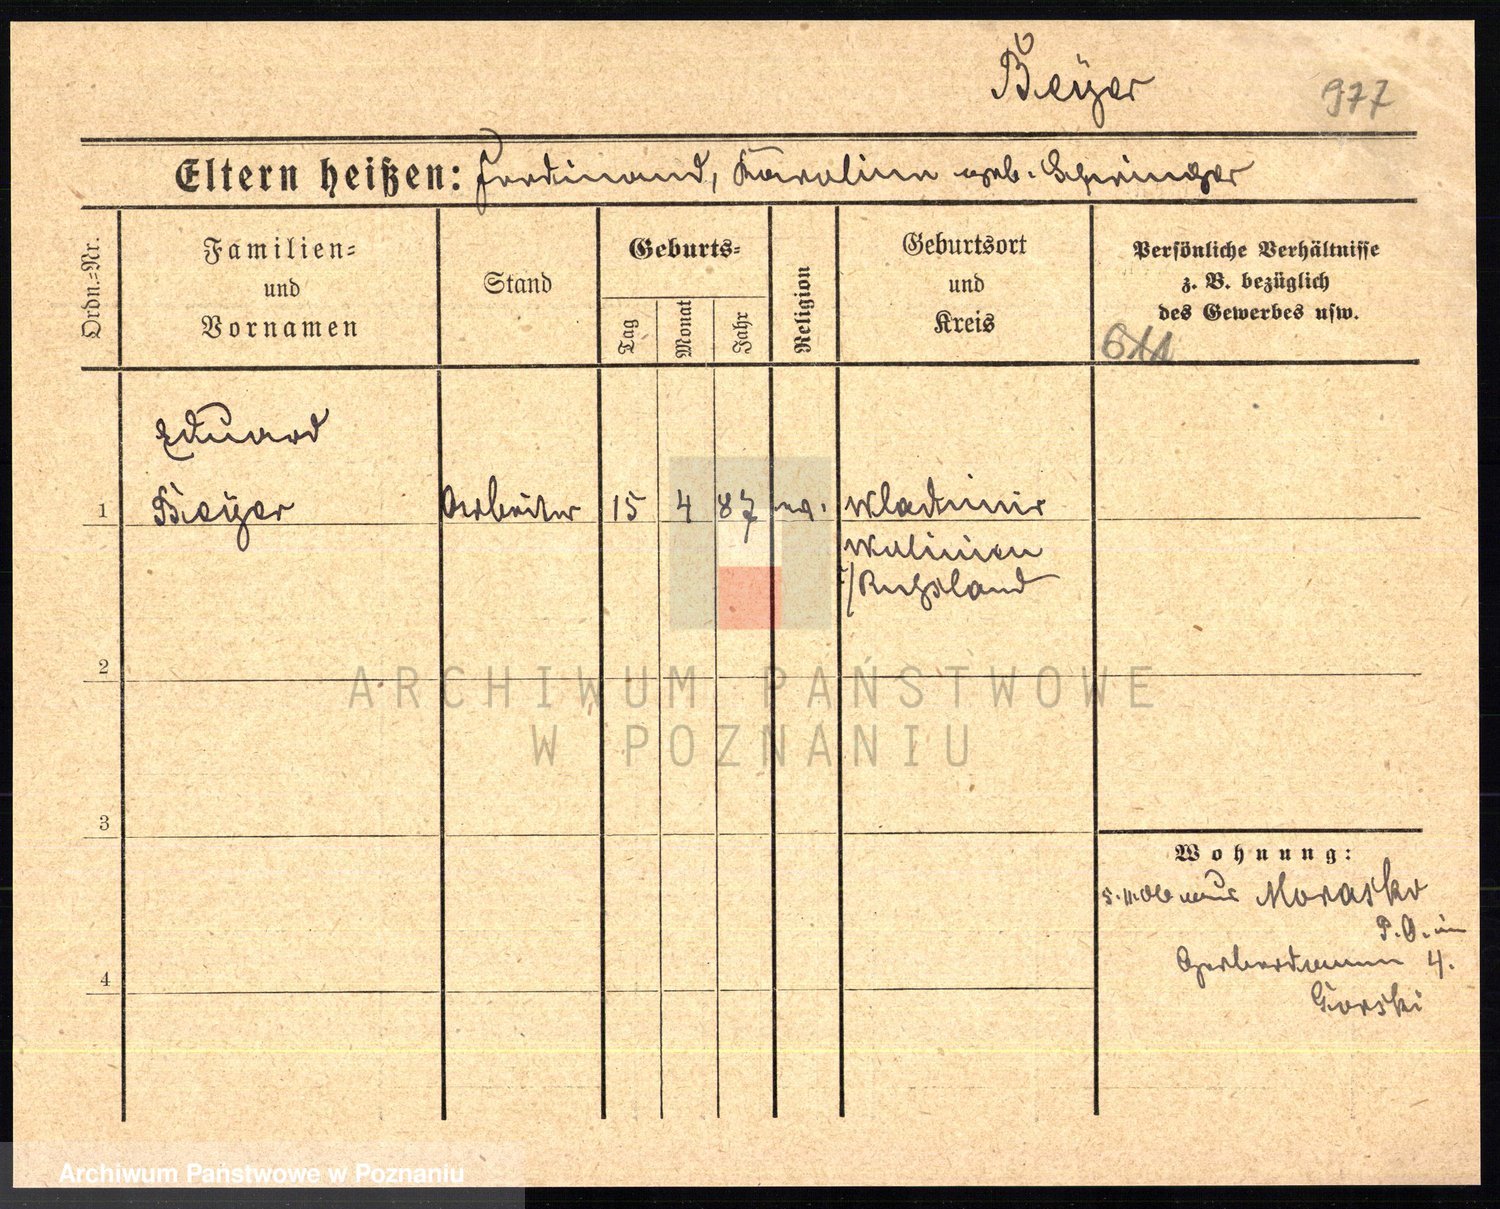 Beÿer
977
Eltern heißen: Ferdinand, Karoline geb. Schwinger
Ordn.=Nr.
Familien=
und
Vornamen
Stand
Geburts=
Tag
Monat
Jahr
Religion
Geburtsort
und
Kreis
Persönliche Verhältnisse
z. B. bezüglich
des Gewerbes usw.
611
Eduard
1 Beÿer Arbeiter 15 4 87 ev. Wladimir
Wolinien
/Rußland
2
ARCHIWUM PAŃSTWOWE
W POZNANIU
3
Wohnung:
5.11.06 aus Morasko
P.O. in
4
Gerberdamm 4.
Gorski
Archiwum Państwowe w Poznaniu